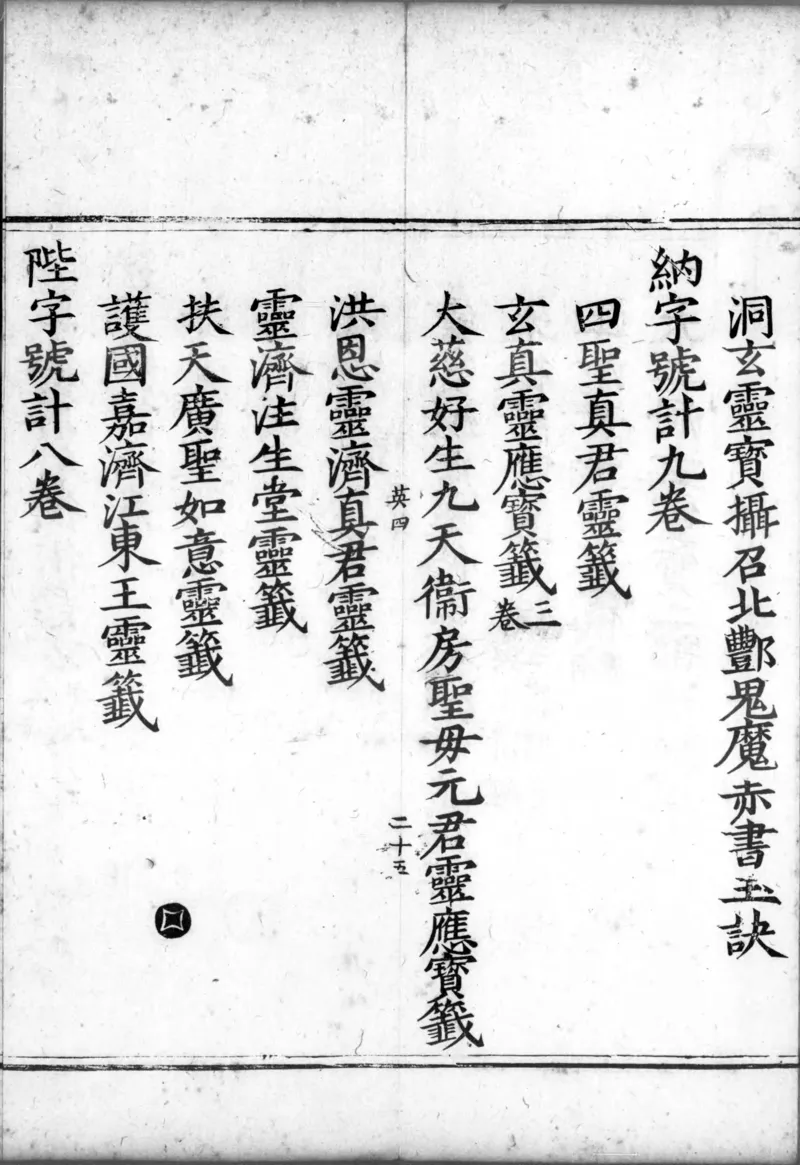 洞玄靈寶攝召北酆鬼魔赤書玉訣
納字號計九卷
四聖真君靈籤
玄真靈應寶籤三卷
大慈好生九天衛房聖母元君靈應寶籤
英四
二十五
洪恩靈濟真君靈籤
靈濟注生堂靈籤
扶天廣聖如意靈籤
護國嘉濟江東王靈籤
陛字號計八卷